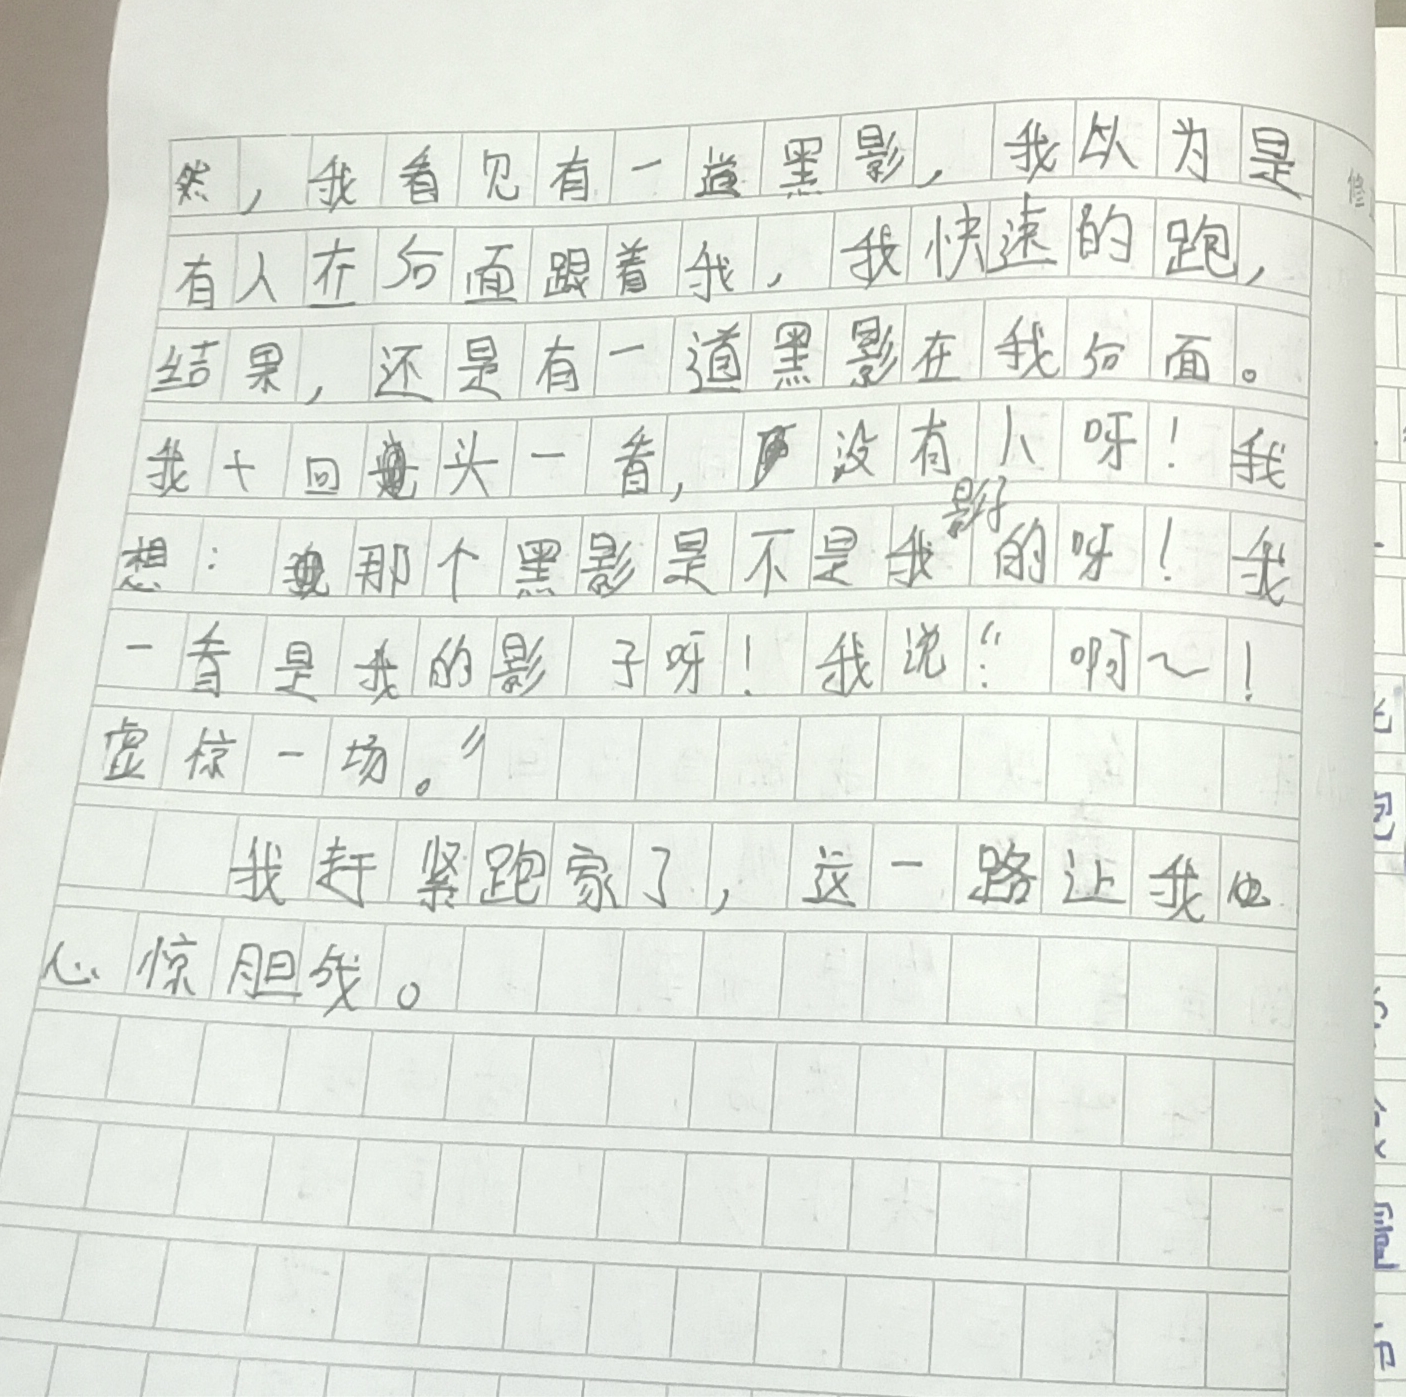 然，我看见有一道黑影，我以为是
有人在后面跟着我，我快速的跑，
结果，还是有一道黑影在我后面。
我十回头一看，没有人呀！我
想：那个黑影是不是我影子的呀！我
一看是我的影子呀！我说：“啊～！
虚惊一场。”
我赶紧跑家了，这一路让我
心惊胆战。
修